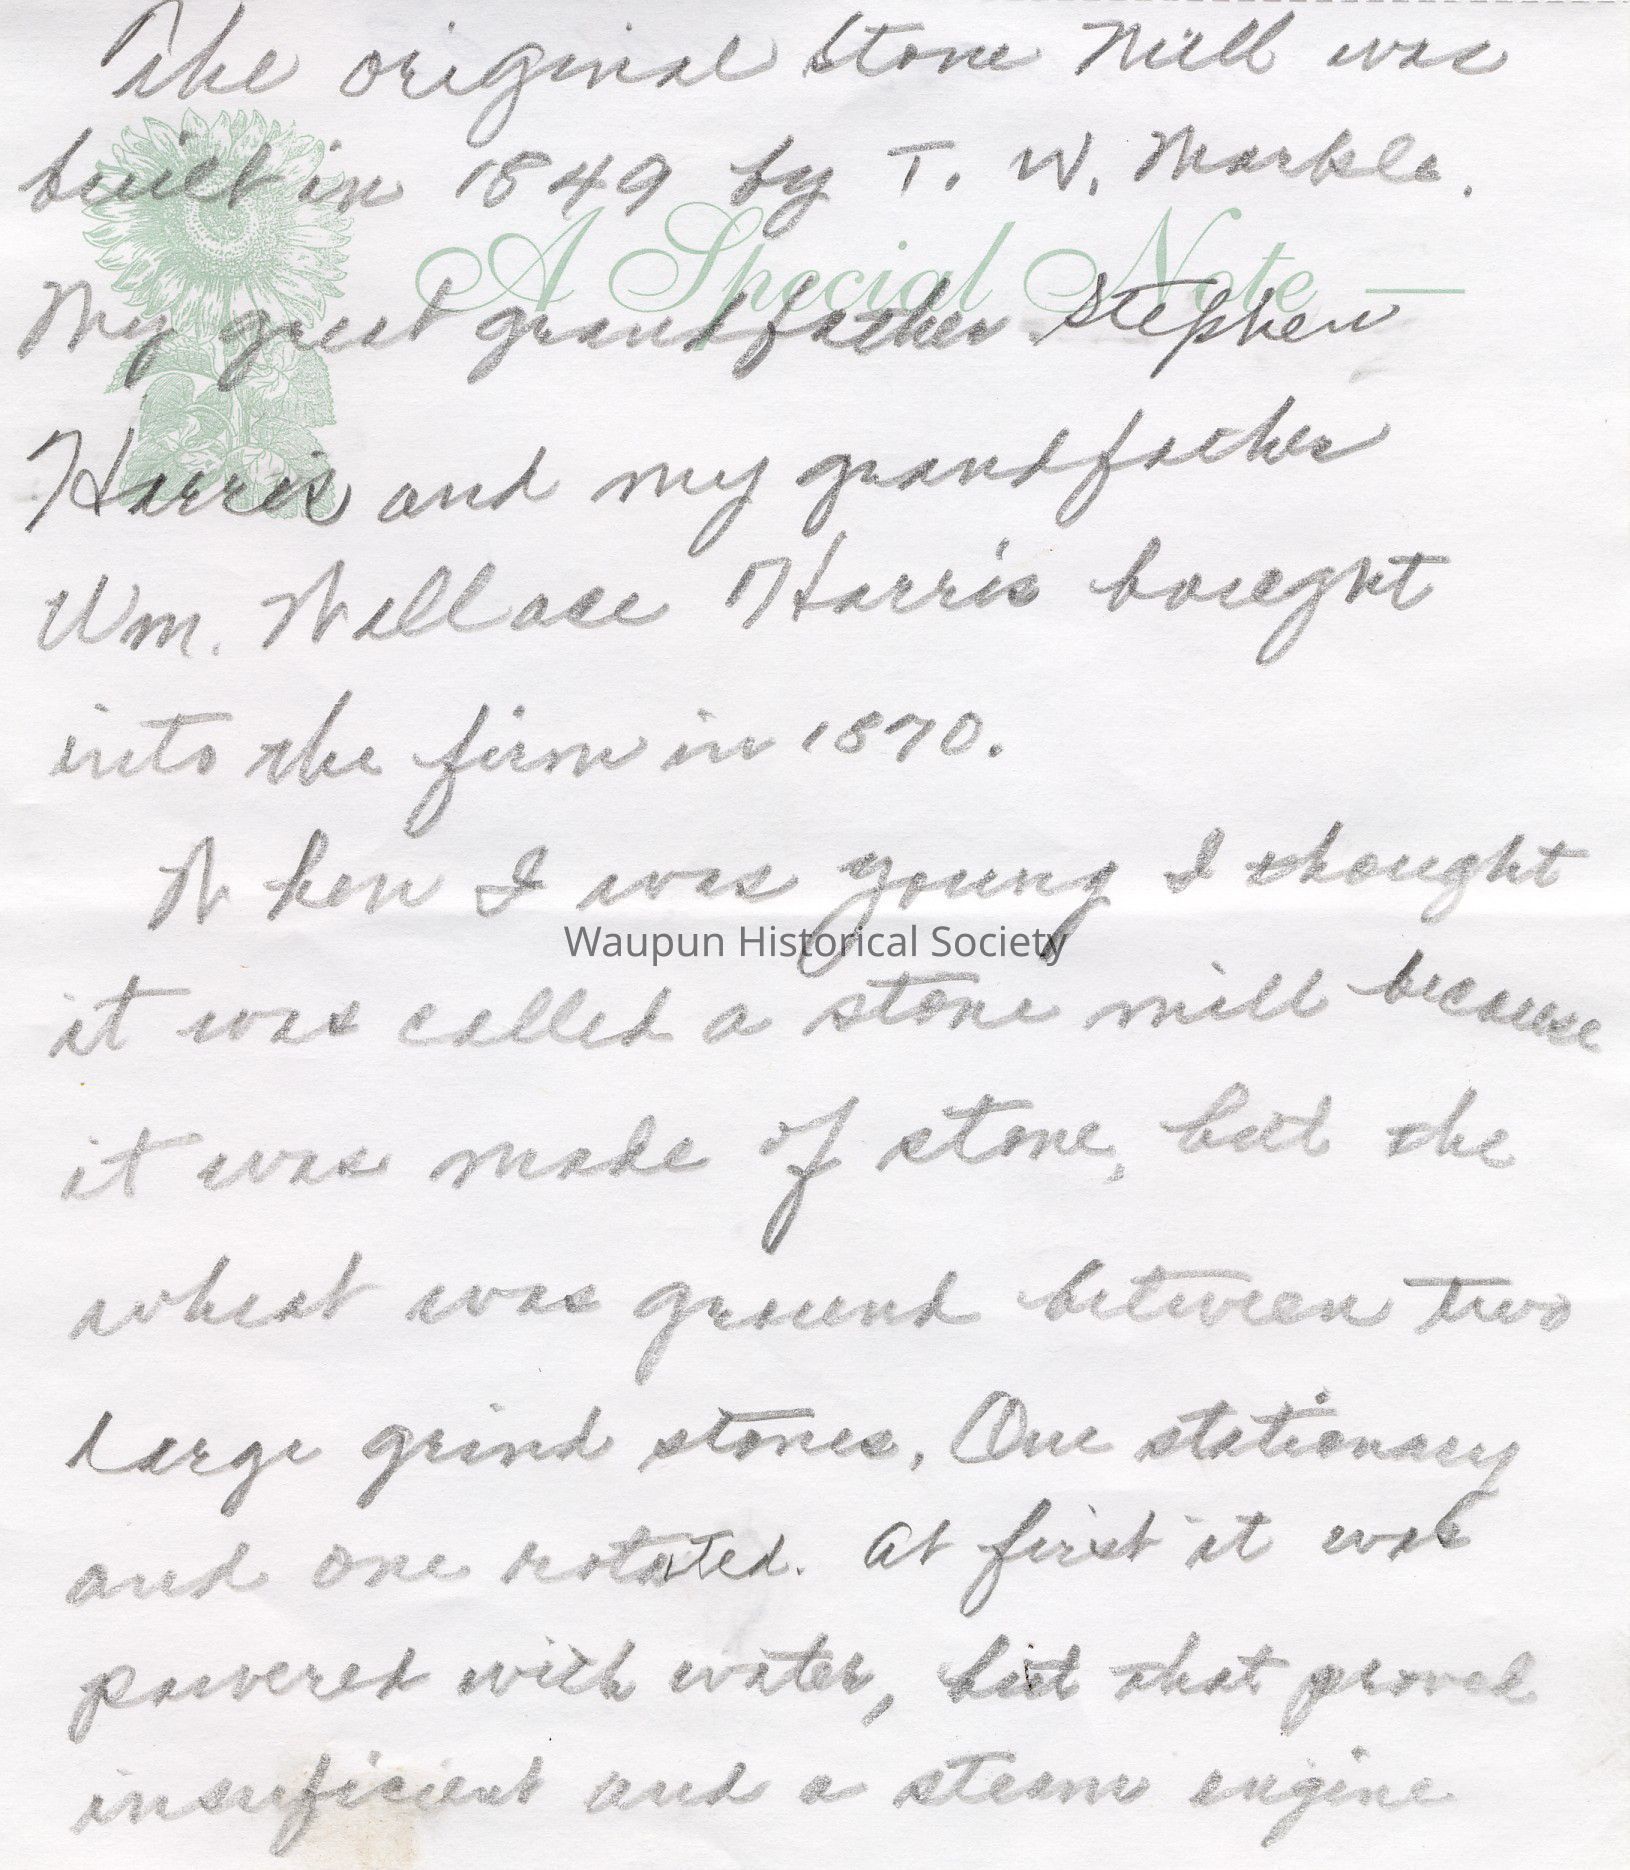 The original Stone Mill was
built in 1849 by T. W. Markle.
A Special Note —
My great grandfather Stephen
Harris and my grandfather
Wm. Wallace Harris bought
into the firm in 1870.
When I was young I thought
Waupun Historical Society
it was called a stone mill because
it was made of stone, but the
wheat was ground between two
large grind stones. One stationary
and one rotated. At first it was
powered with water, but that proved
insuficient and a steam engine